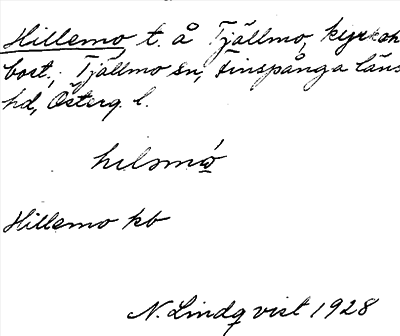 Hillemo t. å Tjällmo, kyrkoh
bost., Tjällmo sn, Finspånga läns
hd, Österg. l.
hilsmó
Hillemo kb
N. Lindqvist 1928